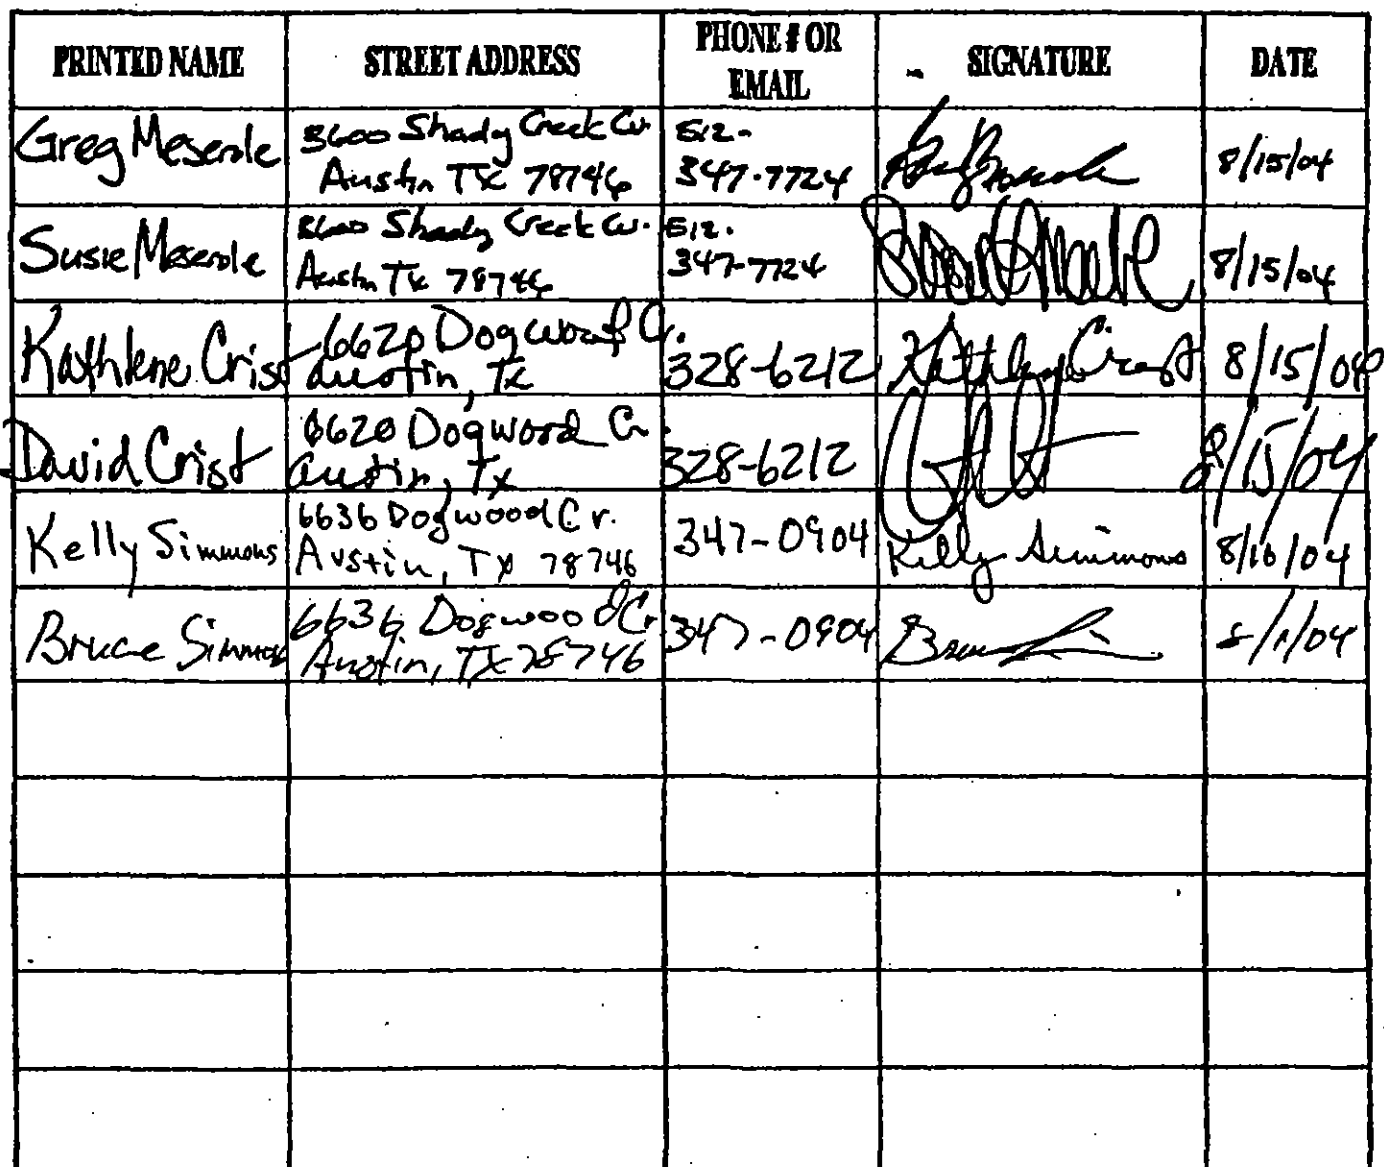 PRINTED NAME STREET ADDRESS PHONE # OR EMAIL SIGNATURE DATE
Greg Meserole 3600 Shady Creek Cv. 512-
Austin TX 78746 347-7724 8/15/04
Susie Meserole 3600 Shady Creek Cv. 512-
Austin TX 78746 347-7724 8/15/04
Kathlene Crist 6620 Dogwood Cr.
Austin, TX 328-6212 Kathlene Crist 8/15/04
David Crist 6620 Dogwood Cr.
Austin, TX 328-6212 8/15/04
Kelly Simmons 6636 Dogwood Cr.
Austin, TX 78746 347-0904 Kelly Simmons 8/16/04
Bruce Simmons 6636 Dogwood Cr
Austin, TX 78746 347-0904 8/1/04